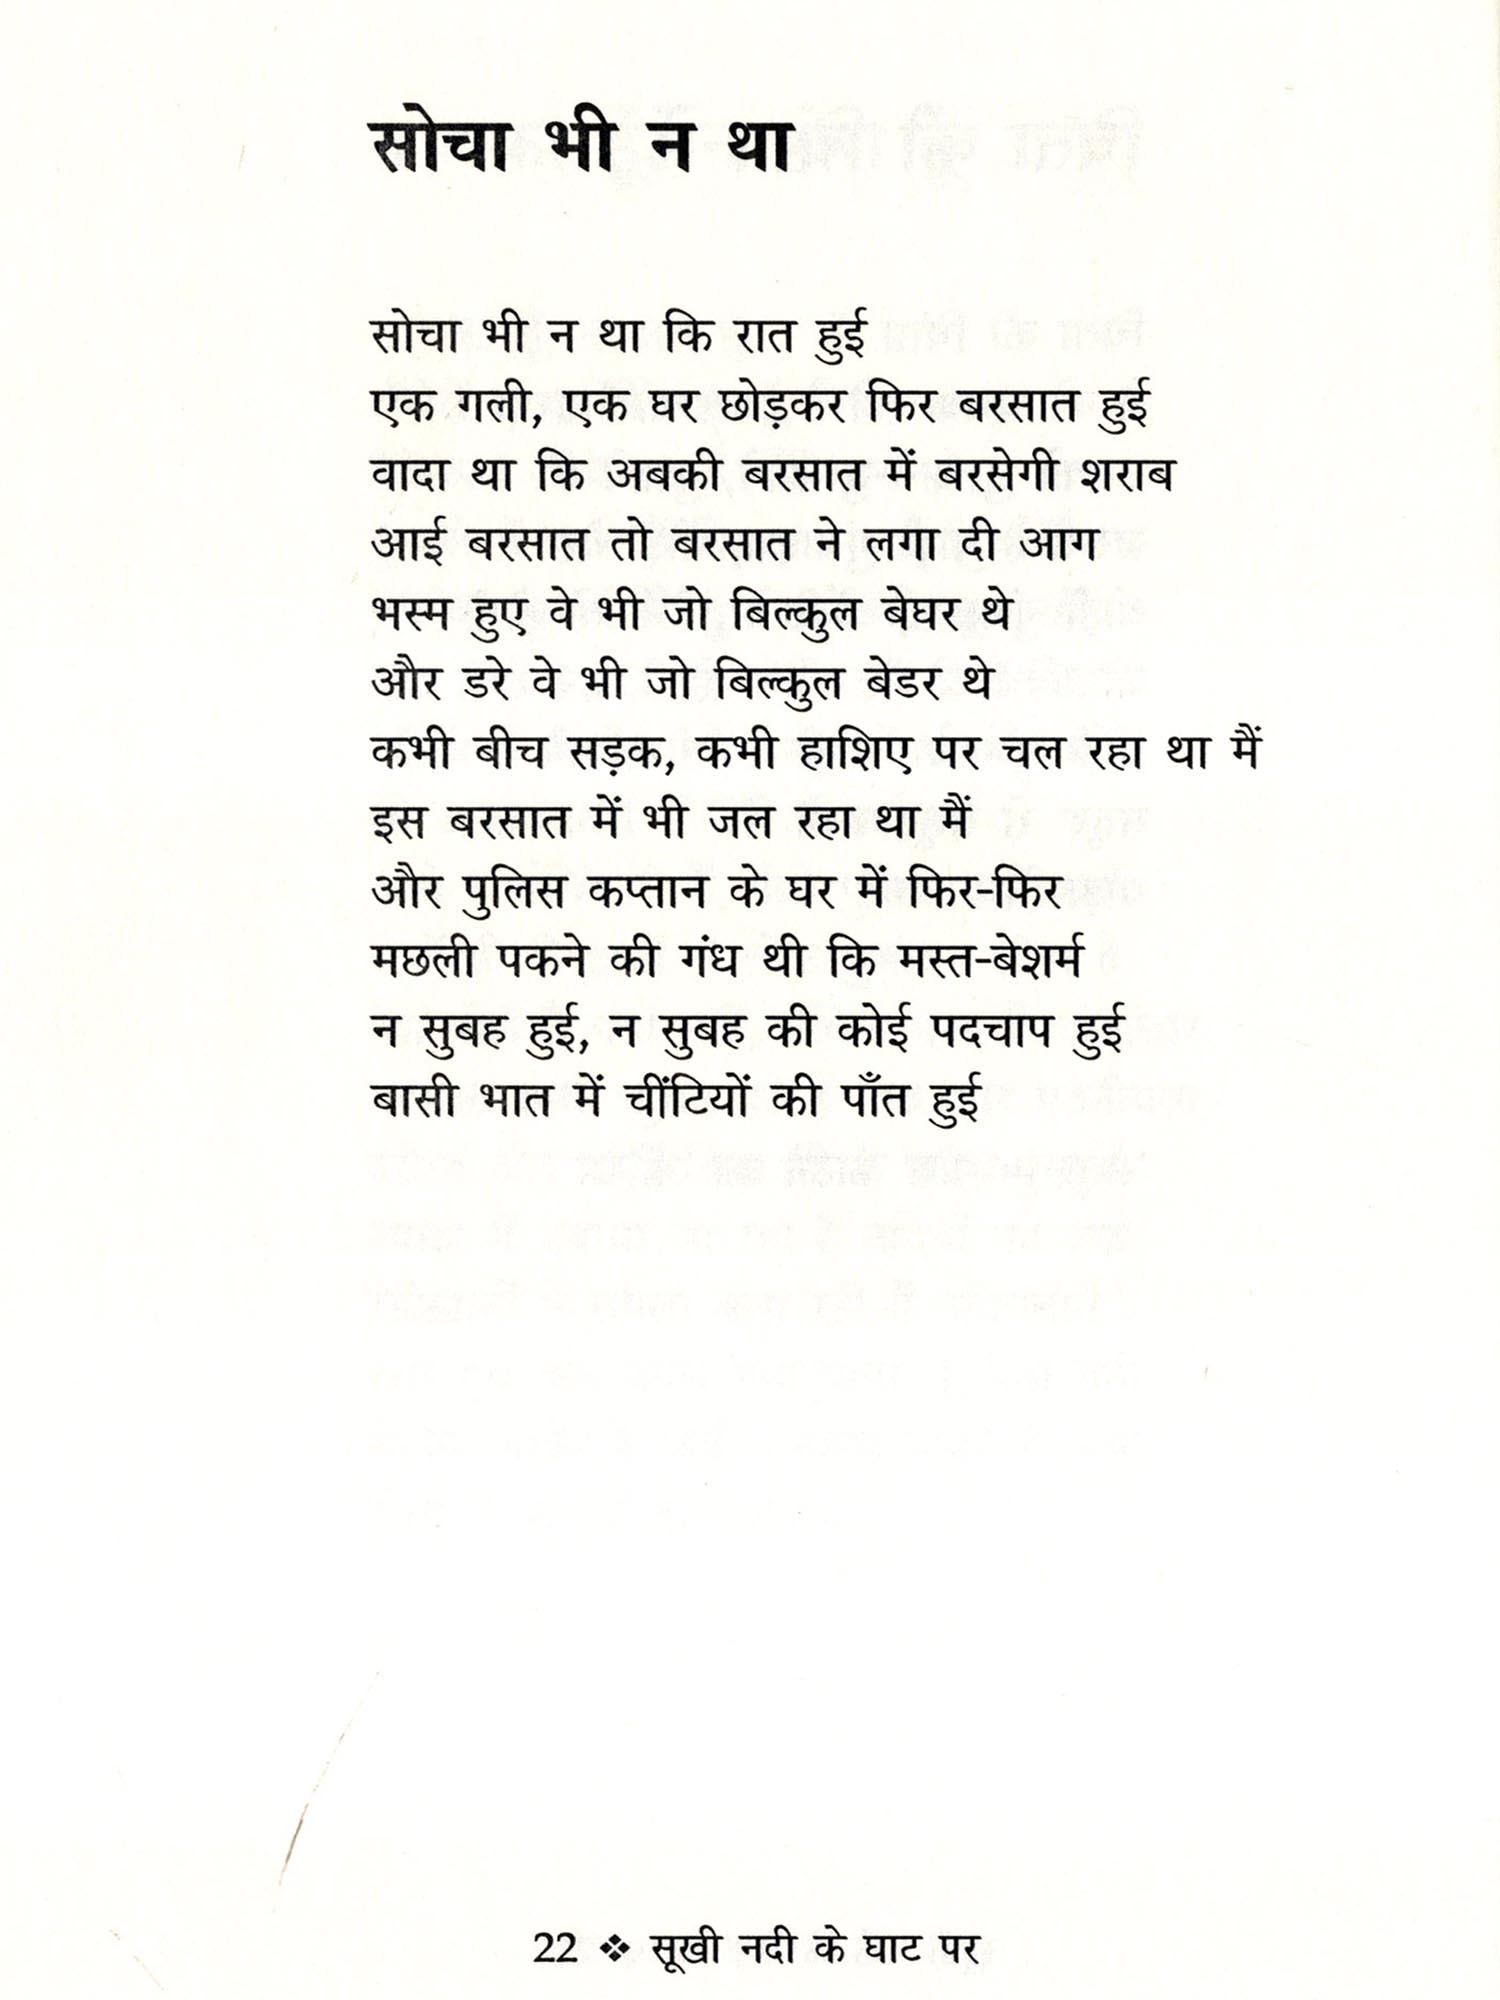 सोचा भी न था
सोचा भी न था कि रात हुई
एक गली, एक घर छोड़कर फिर बरसात हुई
वादा था कि अबकी बरसात में बरसेगी शराब
आई बरसात तो बरसात ने लगा दी आग
भस्म हुए वे भी जो बिल्कुल बेघर थे
और डरे वे भी जो बिल्कुल बेडर थे
कभी बीच सड़क, कभी हाशिए पर चल रहा था मैं
इस बरसात में भी जल रहा था मैं
और पुलिस कप्तान के घर में फिर-फिर
मछली पकने की गंध थी कि मस्त-बेशर्म
न सुबह हुई, न सुबह की कोई पदचाप हुई
बासी भात में चींटियों की पाँत हुई
22 ❖ सूखी नदी के घाट पर